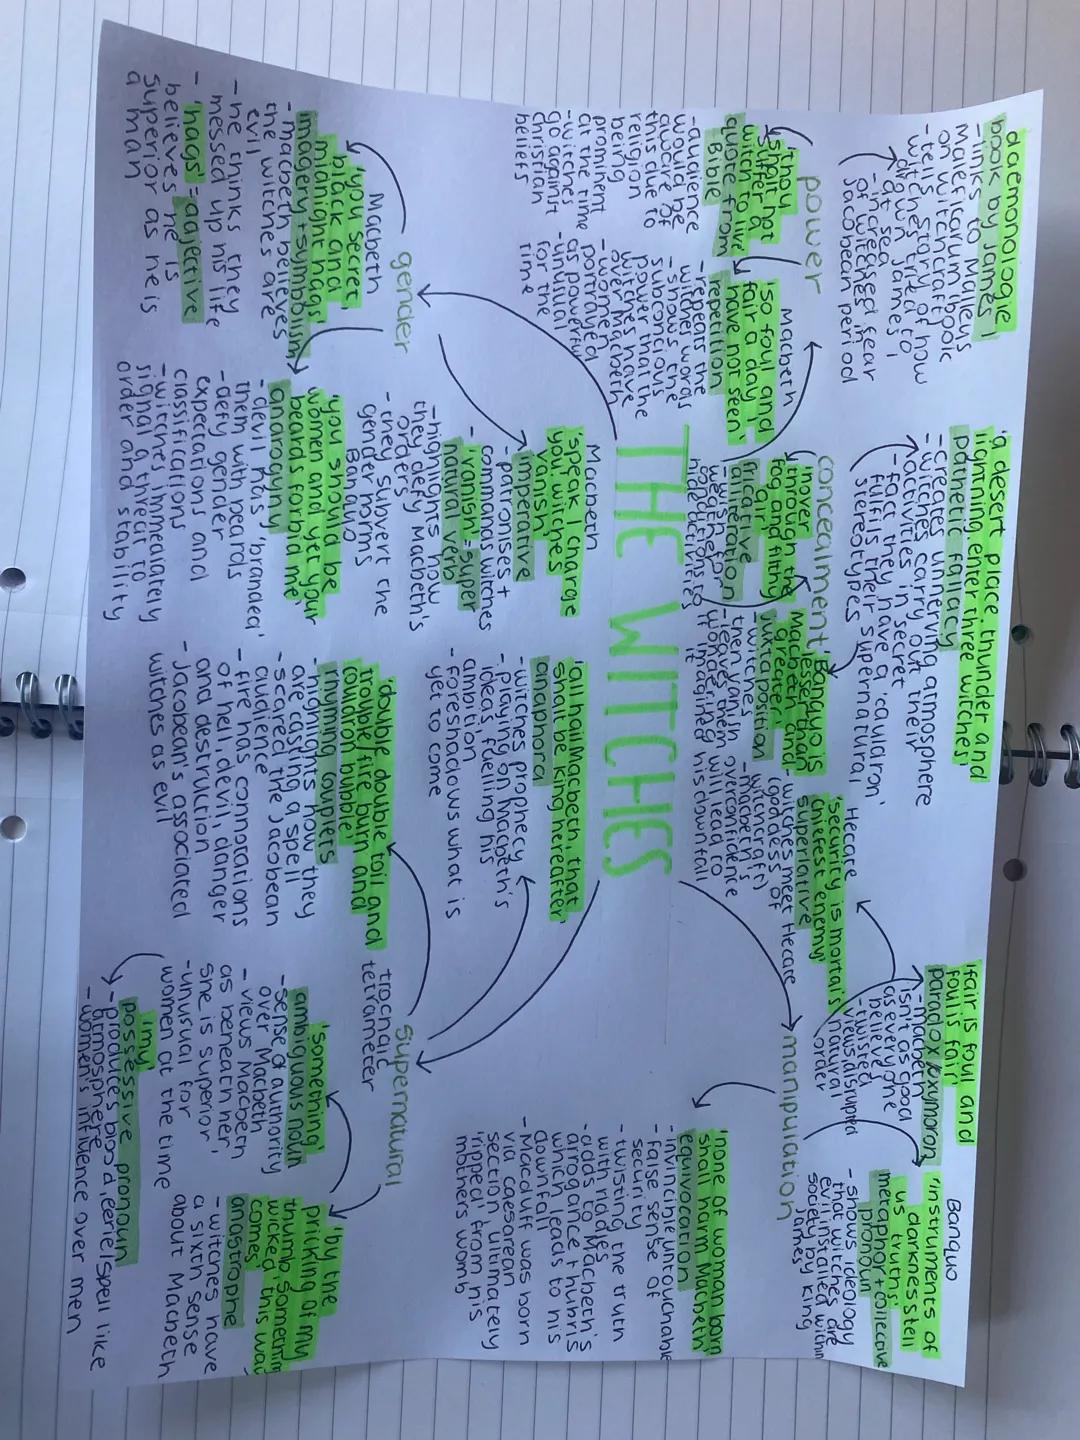 THE WITCHES
daemonologie
book by James I
- links to Malleys
Maleficarum (book
on witchcraft)
- tells story of how
witches tried to
drown James I
at sea
- increased fear
of witches in
Jacobean period
power
'thou
shalt not
suffer a
witch to live'
quote from
Bible
- audience
would be
aware of
this due to
religion
being
prominent
at the time
- witches
go against
christian
beliefs
Macbeth
'so foul and
fair a day I
have not seen'
repetition
- repeats the
witches words
- shows the
subconscious
power that the
witches have
over Macbeth
- women
portrayed
as powerful
- unusual
for the
time
'a desert place thunder and
lightning, enter three witches'
pathetic fallacy
- creates unnerving atmosphere
- witches carry out their
activities in secret
- fact they have a 'cauldron'
fulfils their supernatural
stereotypes
concealment
'hover
through the
fog and filthy
air'
fricative
alliteration
- wish for
objections to
it
'Banquo is
lesser than
Macbeth and
greater'
juxtaposition
- witches
then vanish
- leaves them
wondering
Hecate
'security is mortals
chiefest enemy'
superlative
- witches meet Hecate
(goddess of
witchcraft)
- Macbeth's
overconfidence
will lead to
his downfall
'fair is foul and
foul is fair'
paradox/oxymoron
- macbeth
isn't as good
as everyone
believes
- twisted
views disrupted
natural
order
manipulation
Banquo
'instruments of
darkness tell
us truths'
metaphor + collective
pronoun
- shows ideology
that witches are
evil, installed within
society by King
James
'none of woman born
shall harm Macbeth'
equivocation
- invincible, untouchable
- false sense of
security
- twisting the truth
with riddles
- adds to Macbeth's
arrogance + hubris
which leads to his
downfall
- Macduff was born
via caesarean
section, ultimately
'ripped' from his
mothers womb
gender
Macbeth
'you secret,
black and
midnight hags'
imagery + symbolism
- Macbeth believes
the witches are
evil
- he thinks they
messed up his life
- 'hags' = adjective
believes he is
superior as he is
a man
Macbeth
'speak I charge
you' witches
vanish
imperative
- patronises +
commands witches
- 'vanish' = super
natural verb
- highlights how
they defy Macbeth's
orders
- they subvert the
gender norms
Banquo
'you should be
women and yet your
beards forbid me'
androgyny
- devil has 'branded'
them with beards
- defy gender
expectations and
classifications
- witches immediately
signal a threat to
order and stability
'all hail Macbeth, that
shalt be king hereafter'
anaphora
- witches prophecy
- playing on Macbeth's
ideas, fueling his
ambition
- foreshadows what is
yet to come
supernatural
trochaic
tetrameter
'double, double toil and
trouble/fire burn and
cauldron bubble'
rhyming couplets
- highlights how they
are casting a spell
- scared the Jacobean
audience
- fire has connotations
of hell, devil, danger
and destruction
- Jacobean's associated
witches as evil
'something'
ambiguous noun
- sense of authority
over Macbeth
- views Macbeth
as beneath her,
she is superior
- unusual for
women at the time
'by the
pricking of my
thumb something
wicked this way
comes'
anastrophe
- witches have
a sixth sense
about Macbeth
'my'
possessive pronoun
- produces bloody, eerie/spell like
atmosphere
- women's influence over men